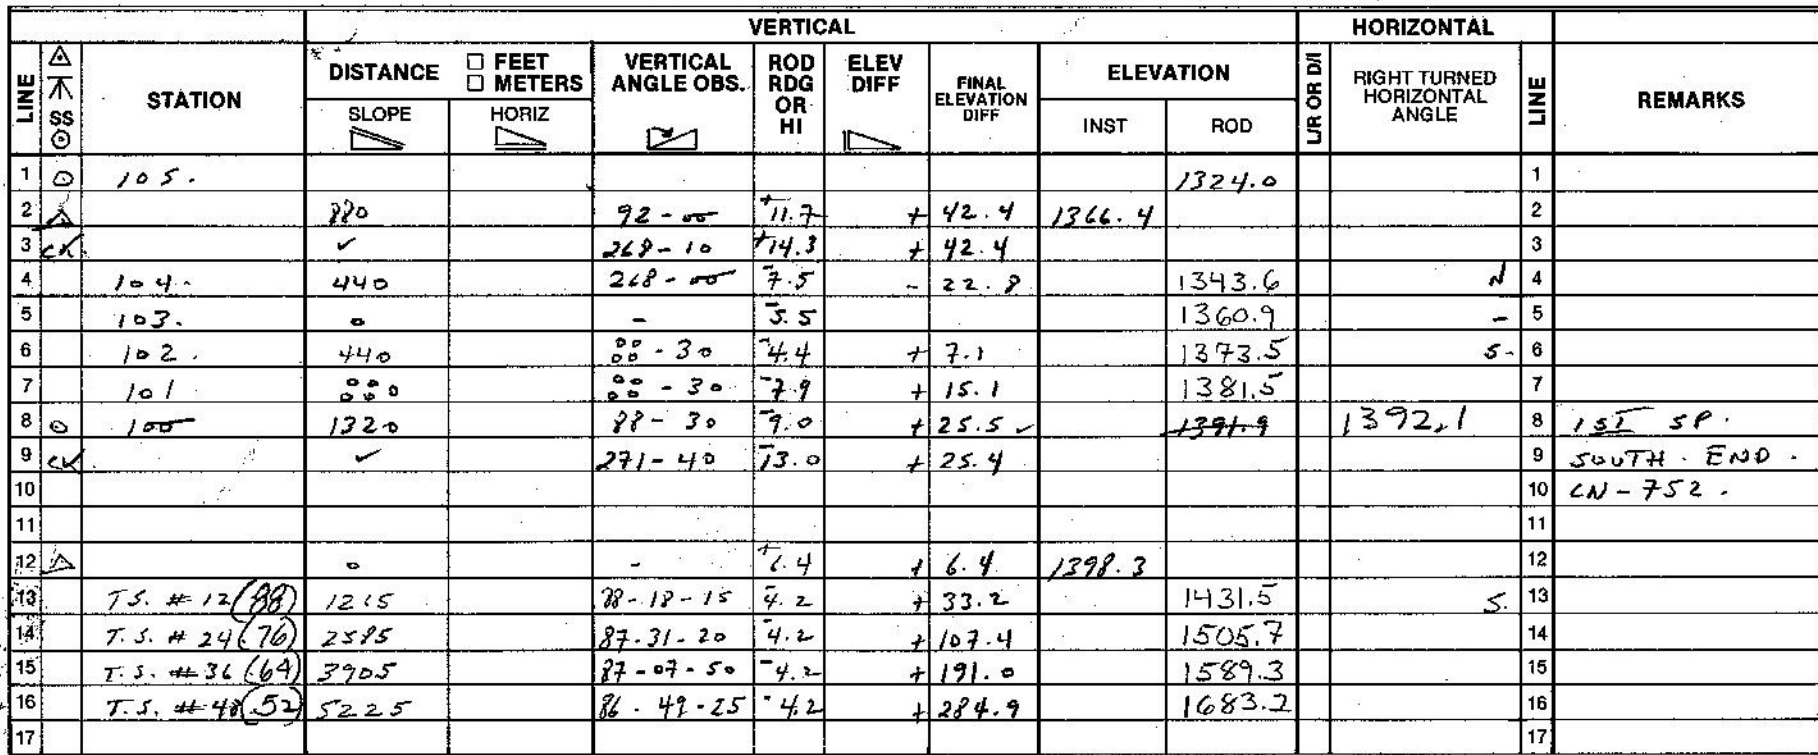 VERTICAL HORIZONTAL
LINE SS STATION DISTANCE □ FEET □ METERS VERTICAL ANGLE OBS. ROD RDG OR HI ELEV DIFF FINAL ELEVATION DIFF ELEVATION L/R OR D/I RIGHT TURNED HORIZONTAL ANGLE LINE REMARKS
SLOPE HORIZ INST ROD
1 105. 1324.0 1
2 880 92-00 +11.7 + 42.4 1366.4 2
3 CK ✓ 268-10 +14.3 + 42.4 3
4 104. 440 268-00 -7.5 - 22.8 1343.6 N 4
5 103. 0 - -5.5 1360.9 - 5
6 102. 440 -30 -4.4 + 7.1 1373.5 S- 6
7 101 -30 -7.9 + 15.1 1381.5 7
8 100 1320 88-30 -9.0 + 25.5 ✓ 1391.9 1392.1 8 1ST SP.
9 CK ✓ 271-40 -13.0 + 25.4 9 SOUTH. END.
10 10 CN-752.
11 11
12 0 - +6.4 + 6.4 1398.3 12
13 T.S. # 12 (88) 1215 88-18-15 -4.2 + 33.2 1431.5 S. 13
14 T.S. # 24 (76) 2585 87-31-20 -4.2 + 107.4 1505.7 14
15 T.S. # 36 (64) 3905 87-07-50 -4.2 + 191.0 1589.3 15
16 T.S. # 48 (52) 5225 86-49-25 -4.2 + 284.9 1683.2 16
17 17